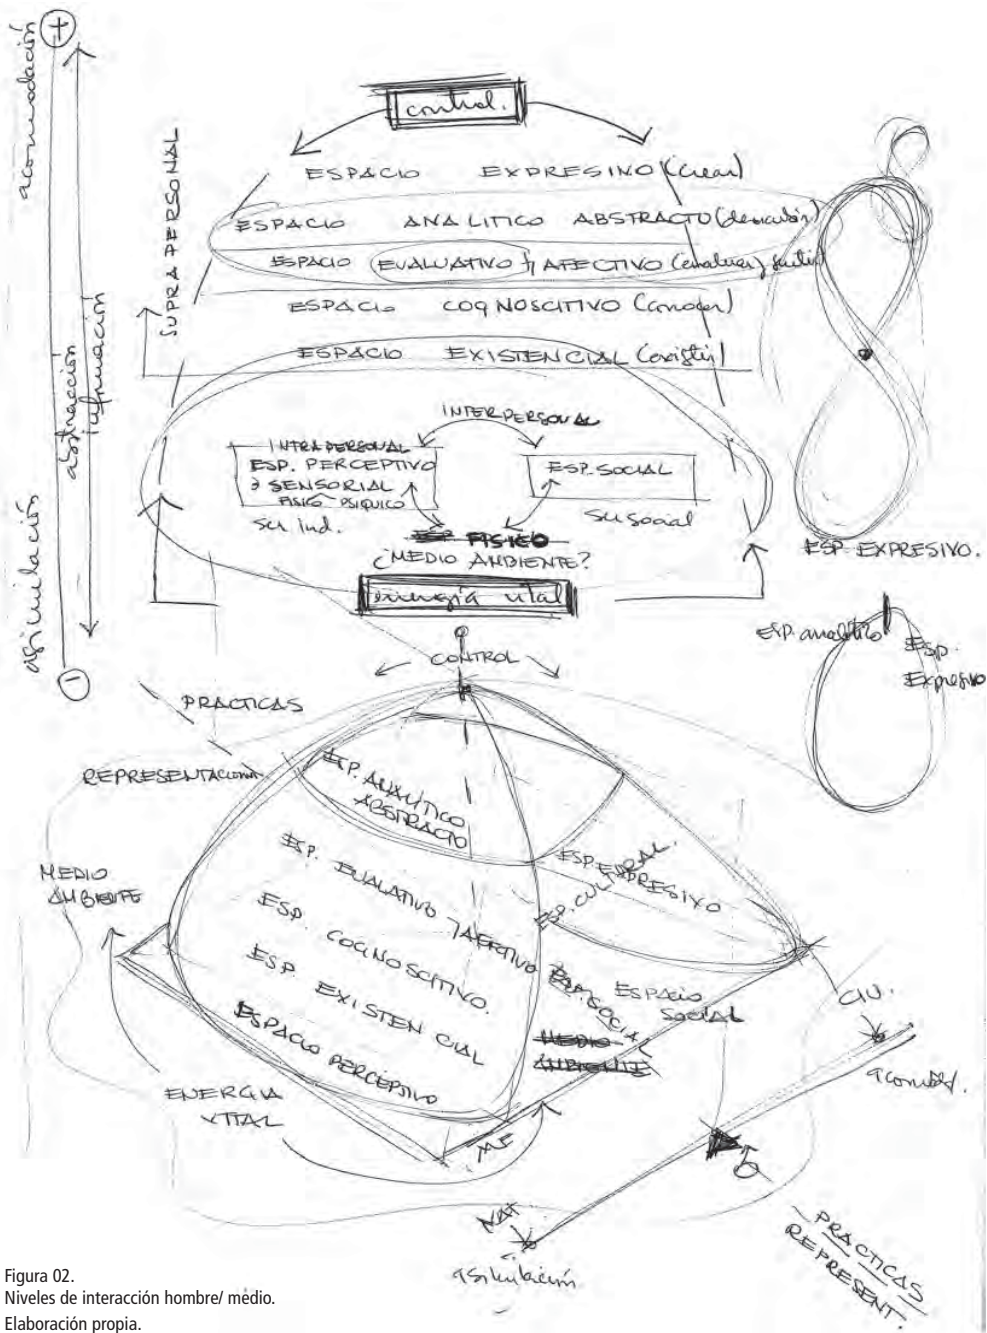 +
acomodación
abstracción
información
asimilación
−
SUPRA PERSONAL
control.
ESPACIO EXPRESIVO (crear)
ESPACIO ANALITICO ABSTRACTO
ESPACIO EVALUATIVO y AFECTIVO (evaluar y sentir)
ESPACIO COGNOSCITIVO (conocer)
ESPACIO EXISTENCIAL (existir)
INTERPERSONAL
INTRAPERSONAL
ESP. PERCEPTIVO
SENSORIAL
FISICO PSIQUICO
ser ind.
ESP. SOCIAL
ser social
ESP FISICO
¿MEDIO AMBIENTE?
energía vital
ESP. EXPRESIVO.
ESP. analítico
Esp.
Expresivo
CONTROL
PRACTICAS
REPRESENTACIONES
MEDIO
AMBIENTE
ESP. ANALÍTICO
ABSTRACTO
ESP. EVALATIVO y AFECTIVO
ESP. COGNOSCITIVO.
ESP EXISTENCIAL
ESPACIO PERCEPTIVO
ESP. EXPRESIVO
ESP. CULTURAL.
ESP. SOCIAL
ESPACIO
SOCIAL
MEDIO
AMBIENTE
ENERGIA
VITAL
MF
CIU.
acomod.
NAT
asimilación
PRACTICAS
REPRESENT.
Figura 02.
Niveles de interacción hombre/ medio.
Elaboración propia.